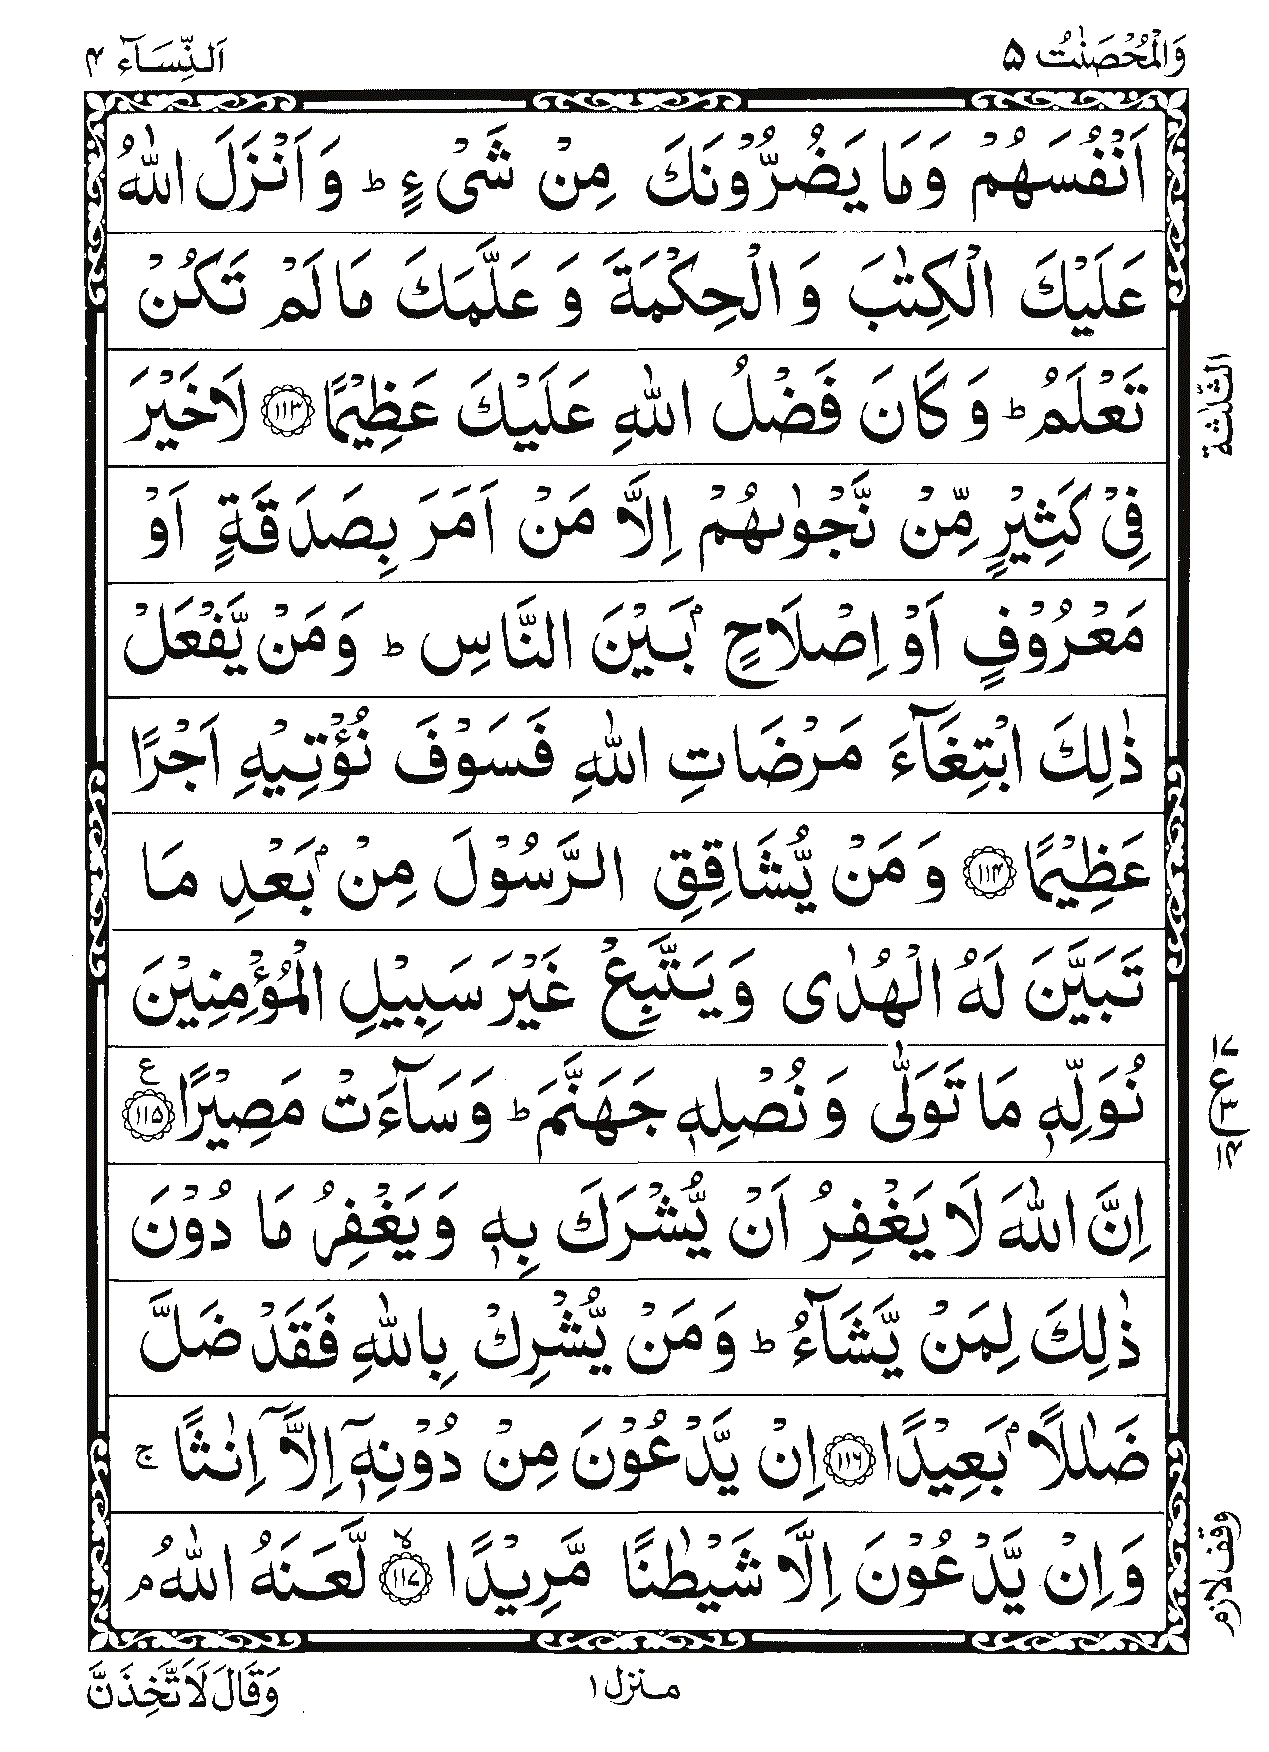 وَالْمُحْصَنٰتُ ۵
اَلنِّسَآء ۴
اَنْفُسَهُمْ وَمَا يَضُرُّوْنَكَ مِنْ شَیْءٍ ؕ وَ اَنْزَلَ اللّٰهُ
عَلَيْكَ الْكِتٰبَ وَ الْحِكْمَةَ وَ عَلَّمَكَ مَا لَمْ تَكُنْ
تَعْلَمُ ؕ وَ كَانَ فَضْلُ اللّٰهِ عَلَيْكَ عَظِيْمًا ﴿۱۱۳﴾ لَا خَيْرَ
فِیْ كَثِيْرٍ مِّنْ نَّجْوٰىهُمْ اِلَّا مَنْ اَمَرَ بِصَدَقَةٍ اَوْ
مَعْرُوْفٍ اَوْ اِصْلَاحٍۭ بَيْنَ النَّاسِ ؕ وَمَنْ يَّفْعَلْ
ذٰلِكَ ابْتِغَآءَ مَرْضَاتِ اللّٰهِ فَسَوْفَ نُؤْتِيْهِ اَجْرًا
عَظِيْمًا ﴿۱۱۴﴾ وَ مَنْ يُّشَاقِقِ الرَّسُوْلَ مِنْۢ بَعْدِ مَا
تَبَيَّنَ لَهُ الْهُدٰی وَ يَتَّبِعْ غَيْرَ سَبِيْلِ الْمُؤْمِنِيْنَ
نُوَلِّهٖ مَا تَوَلّٰی وَ نُصْلِهٖ جَهَنَّمَ ؕ وَسَآءَتْ مَصِيْرًا ﴿۱۱۵﴾ ع
اِنَّ اللّٰهَ لَا يَغْفِرُ اَنْ يُّشْرَكَ بِهٖ وَ يَغْفِرُ مَا دُوْنَ
ذٰلِكَ لِمَنْ يَّشَآءُ ؕ وَمَنْ يُّشْرِكْ بِاللّٰهِ فَقَدْ ضَلَّ
ضَلٰلًاۢ بَعِيْدًا ﴿۱۱۶﴾ اِنْ يَّدْعُوْنَ مِنْ دُوْنِهٖۤ اِلَّاۤ اِنٰثًا ۚ
وَ اِنْ يَّدْعُوْنَ اِلَّا شَيْطٰنًا مَّرِيْدًا ﴿۱۱۷﴾ۙ لَّعَنَهُ اللّٰهُ ۘ
الثلٰثة
۱۷
ع
۳
۱۴
وقف لازم
منزل ۱
وَقَالَ لَاَتَّخِذَنَّ